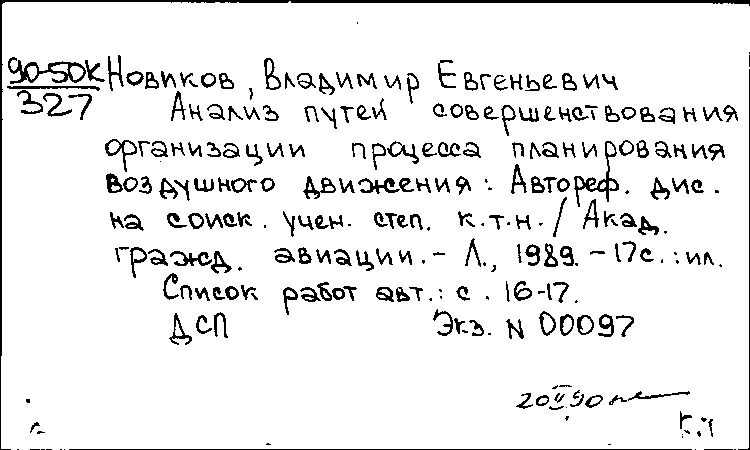 90-50К Новиков, Владимир Евгеньевич
327 Анализ путей совершенствования
организации процесса планирования
воздушного движения: Автореф. дис.
на соиск. учен. степ. к.т.н. / Акад.
гражд. авиации. - Л., 1989. - 17с.: ил.
Список работ авт.: с. 16-17.
ДСП Экз. N 00097
20 II 90